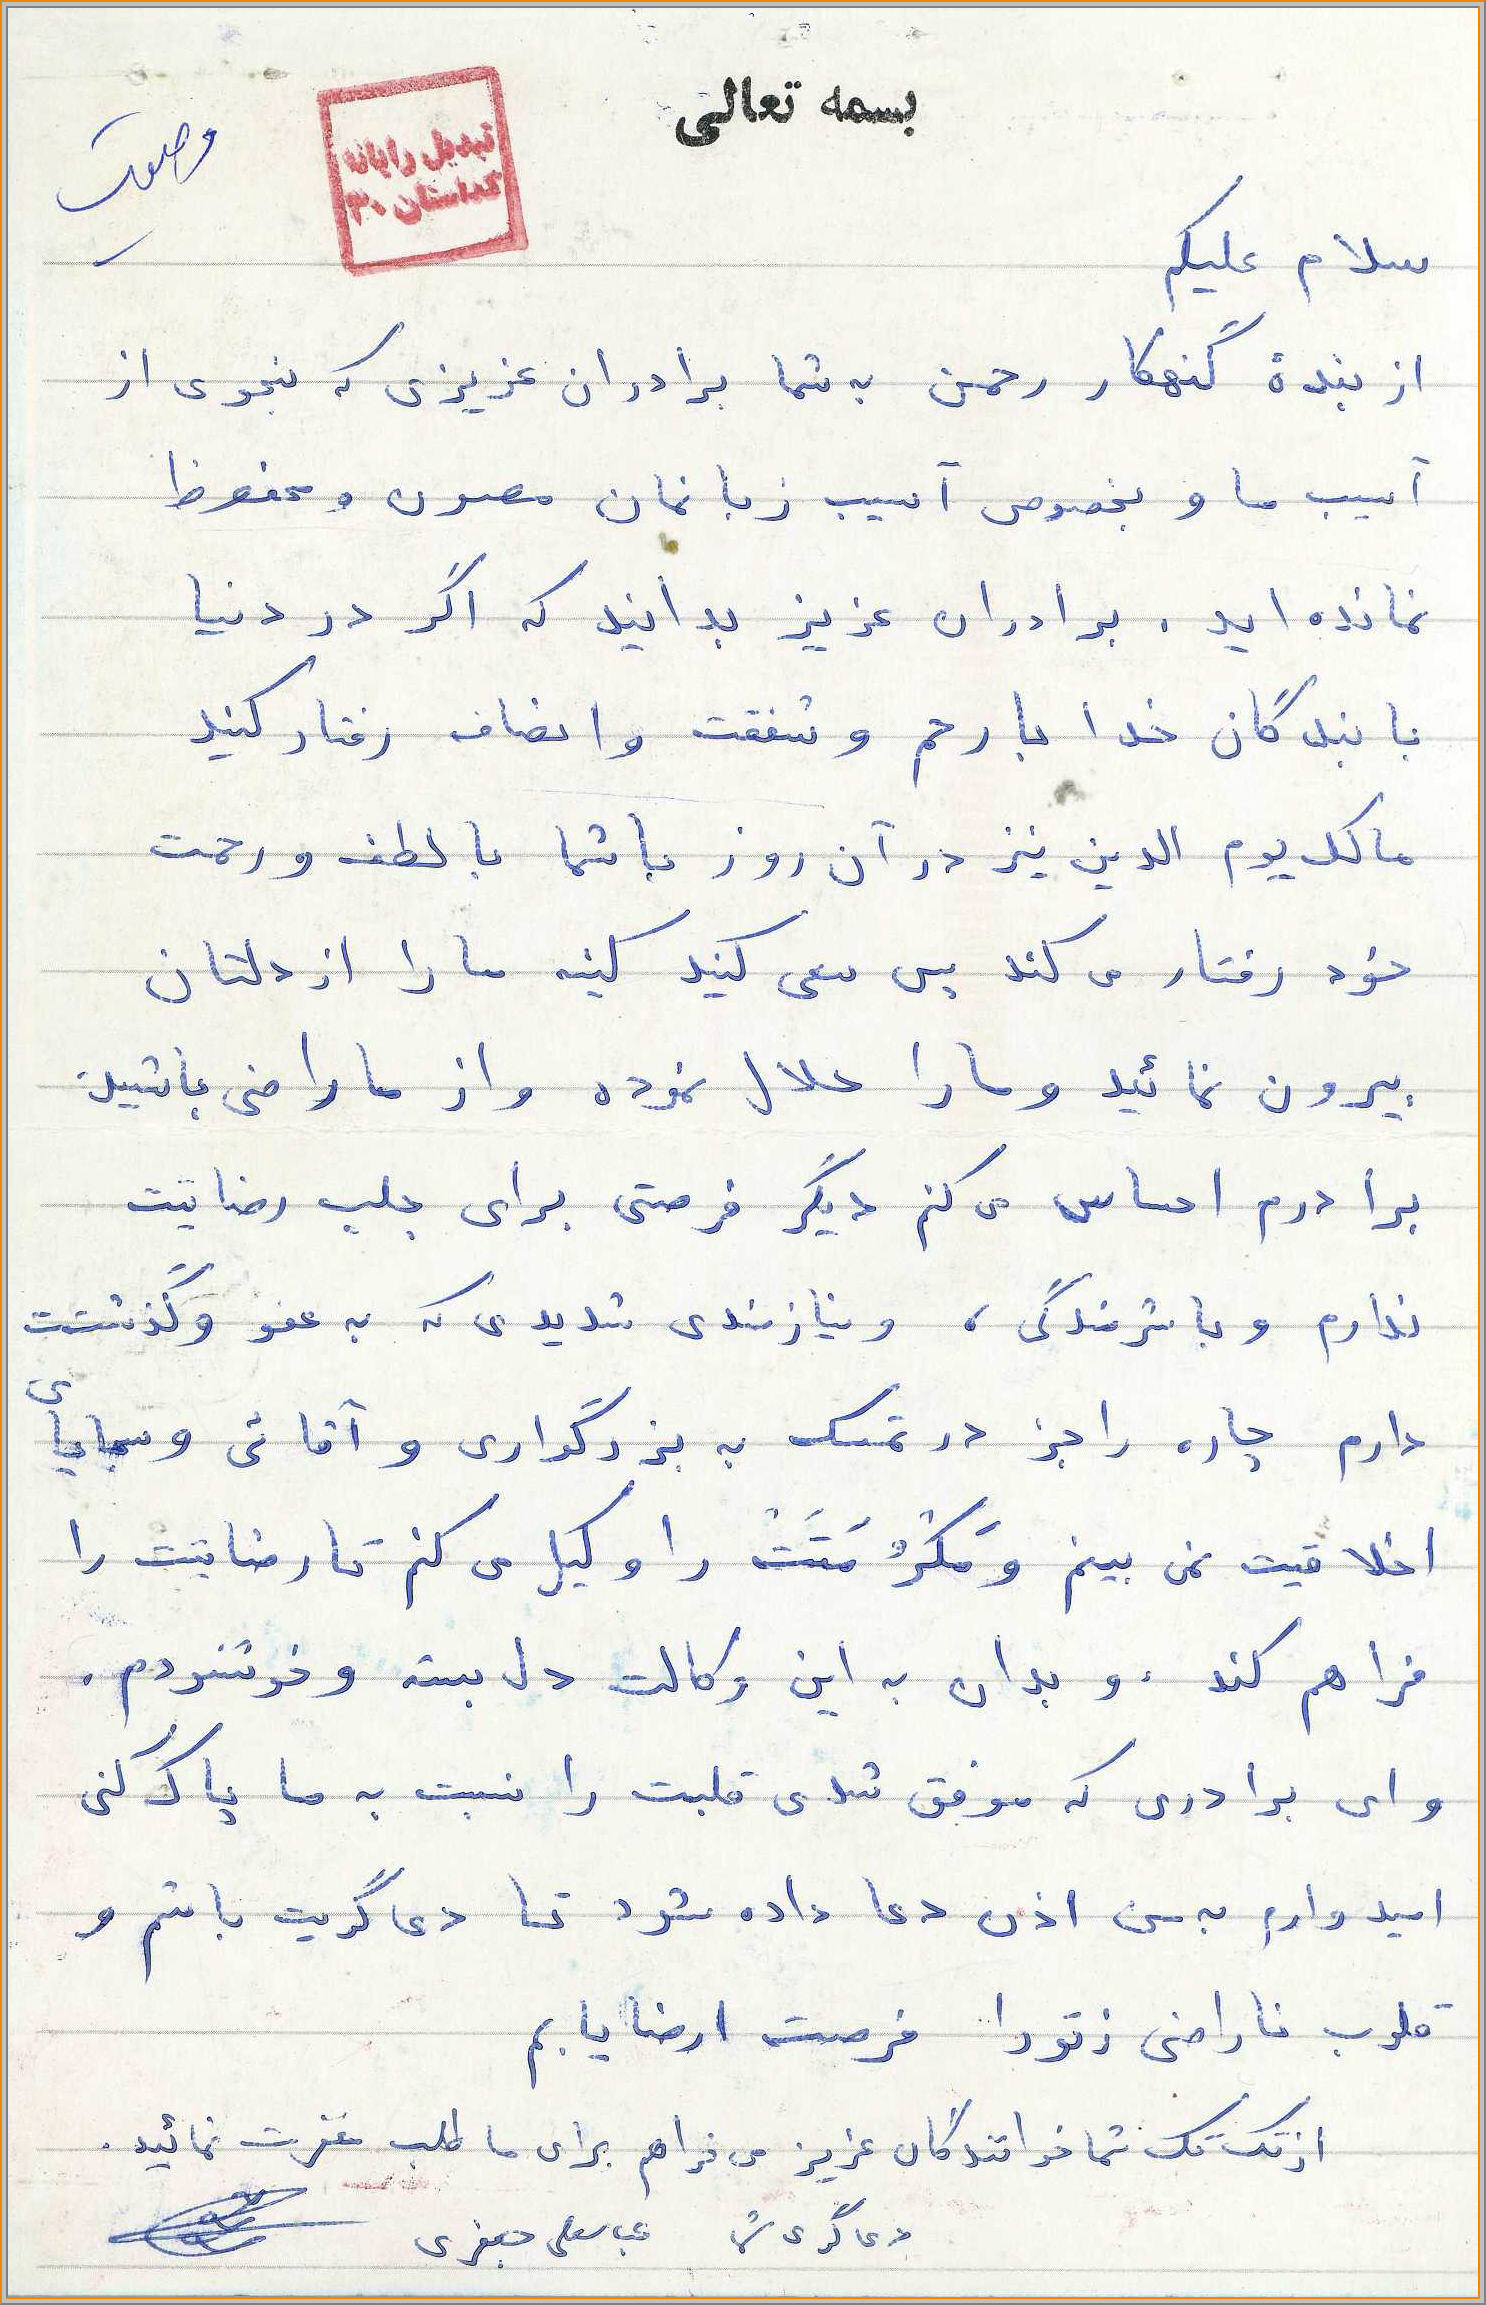 بسمه تعالی
وصیت
تبدیل رایانه
گداستان ۳۰
سلام علیکم
از بندۀ گنهکار رحمن به شما برادران عزیزی که بنحوی از
آسیب ما و بخصوص آسیب زبانمان مصون و محفوظ
نمانده اید . برادران عزیز بدانید که اگر در دنیا
با بندگان خدا با رحم و شفقت و انصاف رفتار کنید
مالک یوم الدین نیز در آن روز با شما با لطف و رحمت
خود رفتار می کند پس سعی کنید کینه ما را از دلتان
بیرون نمائید و ما را حلال نموده و از ما راضی باشید.
برادرم احساس می کنم دیگر فرصتی برای جلب رضایتت
ندارم و با شرمندگی ، و نیازمندی شدیدی که به عفو و گذشتت
دارم چاره را جز در تمسک به بزرگواری و آقائی و سجایای
اخلاقیت نمی بینم و مَکْرُمَتَتْ را وکیل می کنم تا رضایتت را
فراهم کند . و بدان به این وکالت دل بسته و خوشنودم .
و ای برادری که موفق شدی قلبت را نسبت به ما پاک کنی
امیدوارم به من اذن دعا داده شود تا دعاگریت باشم و
قلوب ناراضی ز تو را فرصت ارضا یابم
از تک تک شما خوانندگان عزیز می خواهم برای ما طلب مغفرت نمائید .
دعاگری شما عباسعلی جعفری